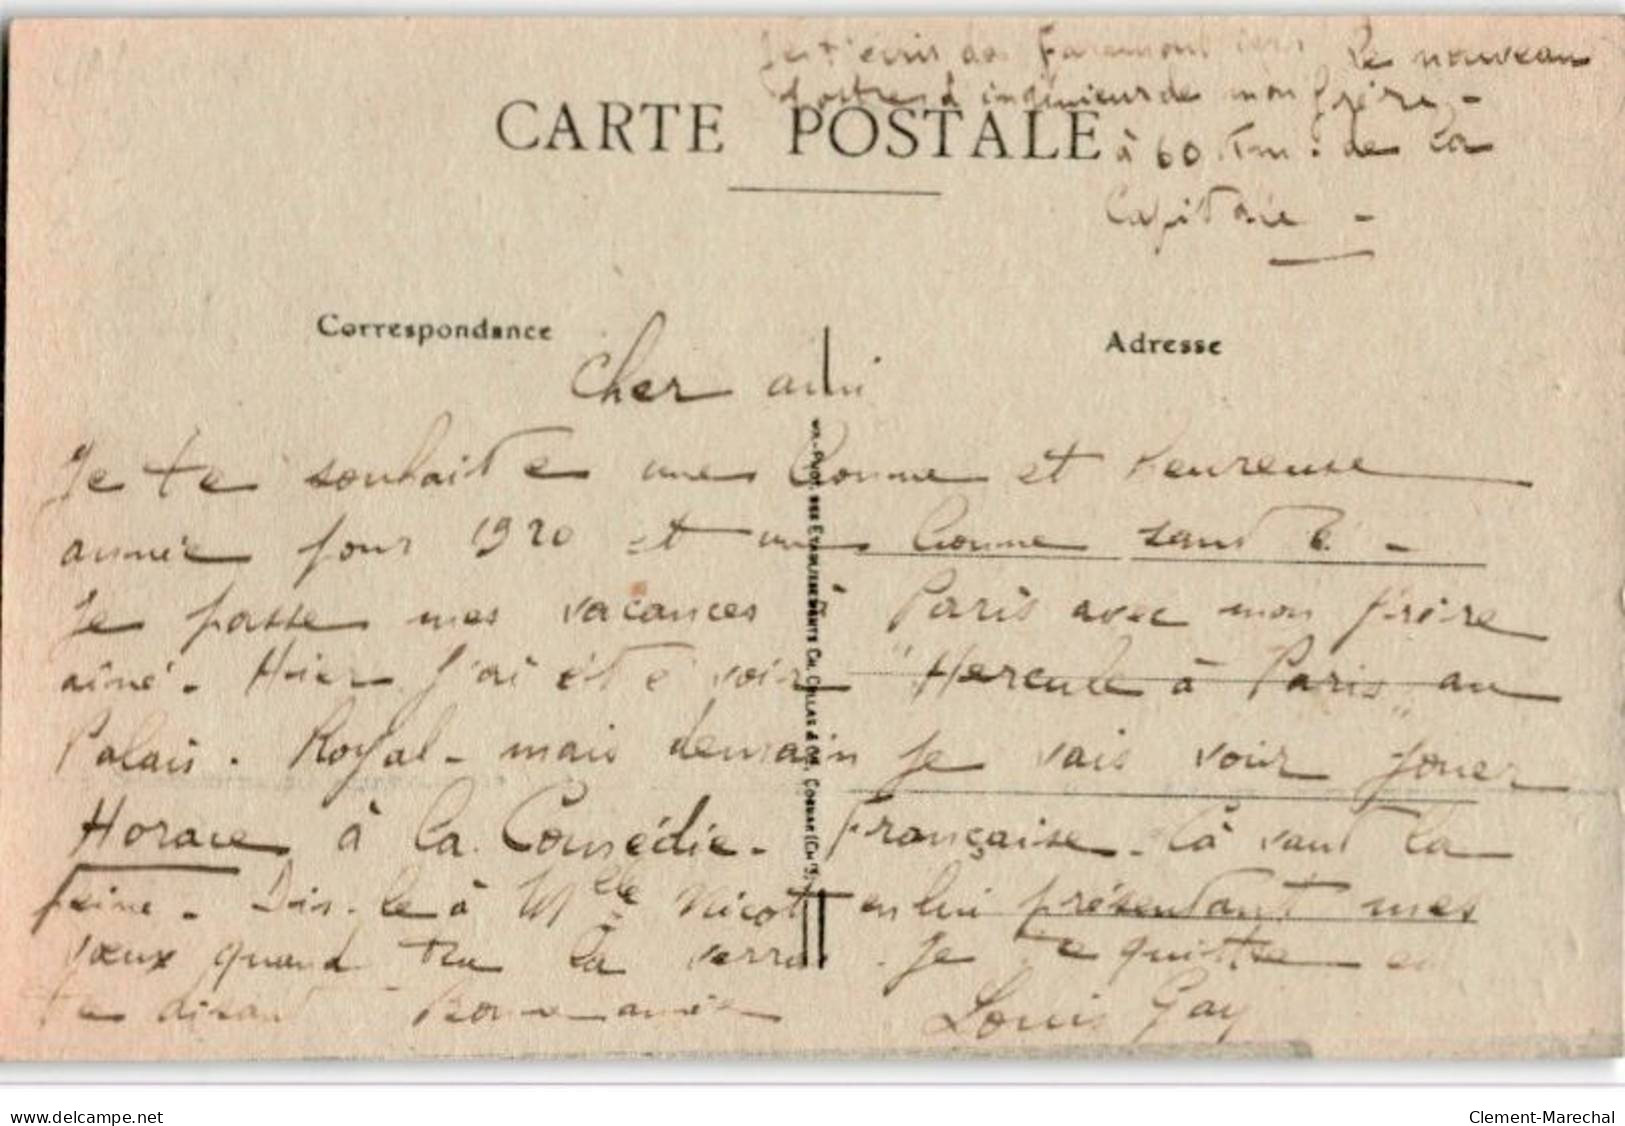 Je t'écris de le nouveau
poste d'ingénieur de mon frère -
à 60 Km. de la
Capitale -
CARTE POSTALE
Correspondance
Adresse
Cher ami
Je te souhaite une bonne et heureuse
année pour 1920 et une bonne santé -
Je passe mes vacances à Paris avec mon frère
aîné. Hier j'ai été voir "Hercule à Paris" au
Palais-Royal - mais demain je vais voir jouer
Horace à la Comédie-Française. Cà vaut la
peine. Dis-le à Mlle Nicot en lui présentant mes
vœux quand tu la verras. Je te quitte en
te disant Bonne année Louis Gay
PHOT. DES ETABLISSEMENTS CH. COLLAS & Cie, COGNAC (Chte)
www.delcampe.net
Clement-Marechal